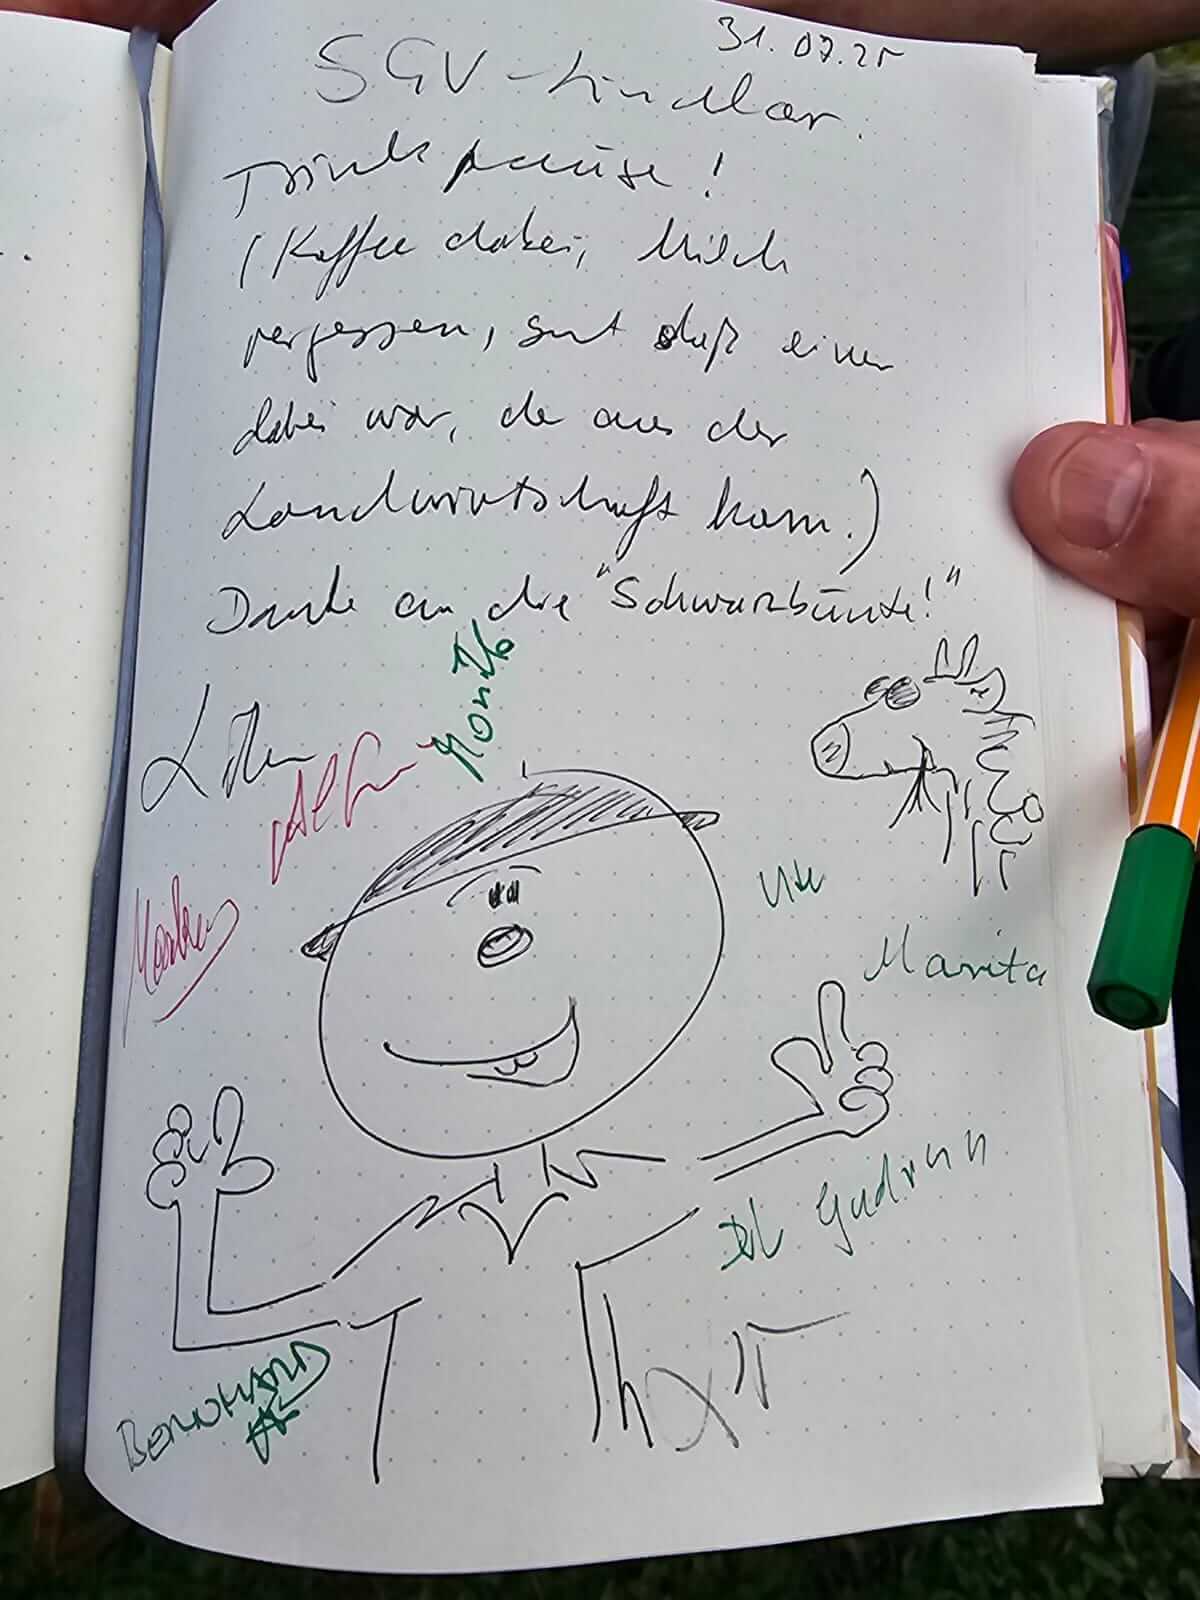 31.07.25
SGV-Lindlar.
Trinkpause!
(Kaffee dabei, Milch
vergessen, gut daß einer
dabei war, de aus der
Landwirtschaft kam.)
Danke an die "Schwarzbünte!"
Monika
Ute
Marita
Gudrun
BERNHARD